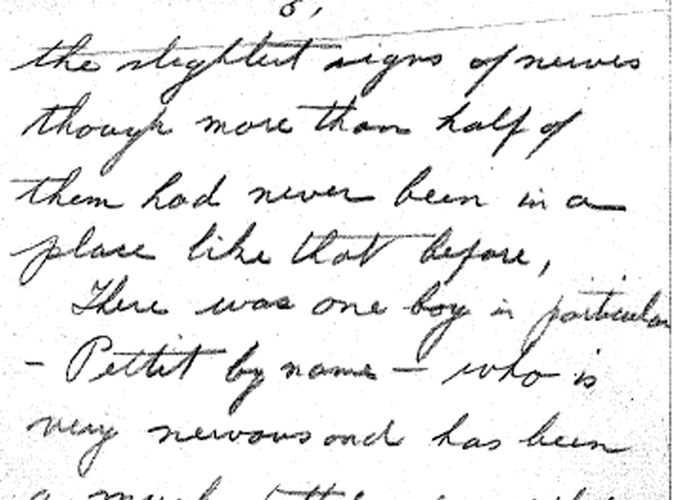 8,
the slightest signs of nerves
though more than half of
them had never been in a
place like that before,
There was one boy in particular
- Pettit by name - who is
very nervous and has been
a much